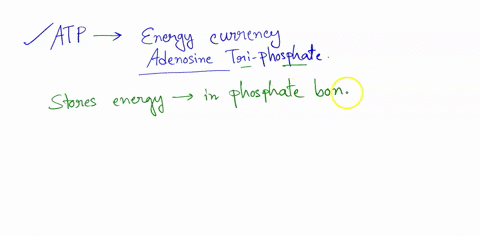 ✓ATP → Energy currency
Adenosine Tri-phosphate.
Stores energy → in phosphate bon.